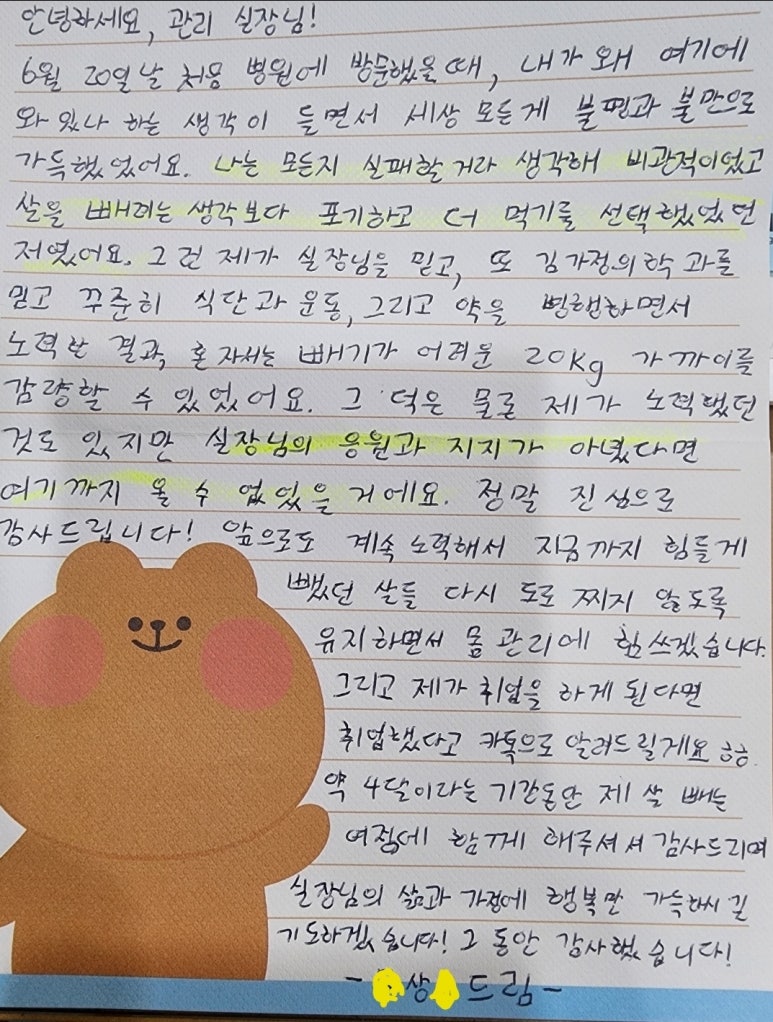 안녕하세요, 관리 실장님!
6월 20일날 처음 병원에 방문했을 때, 내가 왜 여기에
와 있나 하는 생각이 들면서 세상 모든게 불평과 불만으로
가득했었어요. 나는 모든지 실패할거라 생각해 비관적이었고
살을 빼려는 생각보다 포기하고 더 먹기를 선택했었던
저였어요. 그런 제가 실장님을 믿고, 또 김가정의학과를
믿고 꾸준히 식단과 운동, 그리고 약을 병행하면서
노력한 결과, 혼자서는 빼기가 어려운 20kg 가까이를
감량할 수 있었어요. 그 덕은 물론 제가 노력했던
것도 있지만 실장님의 응원과 지지가 아녔다면
여기까지 올 수 없었을 거에요. 정말 진심으로
감사드립니다! 앞으로도 계속 노력해서 지금까지 힘들게
뺐던 살들 다시 도로 찌지 않도록
유지하면서 몸 관리에 힘쓰겠습니다.
그리고 제가 취업을 하게 된다면
취업했다고 카톡으로 알려드릴게요 ㅎㅎ.
약 4달이라는 기간동안 제 살 빼는
여정에 함께 해주셔서 감사드리며
실장님의 삶과 가정에 행복만 가득하시길
기도하겠습니다! 그 동안 감사했습니다!
- 상 드림 -